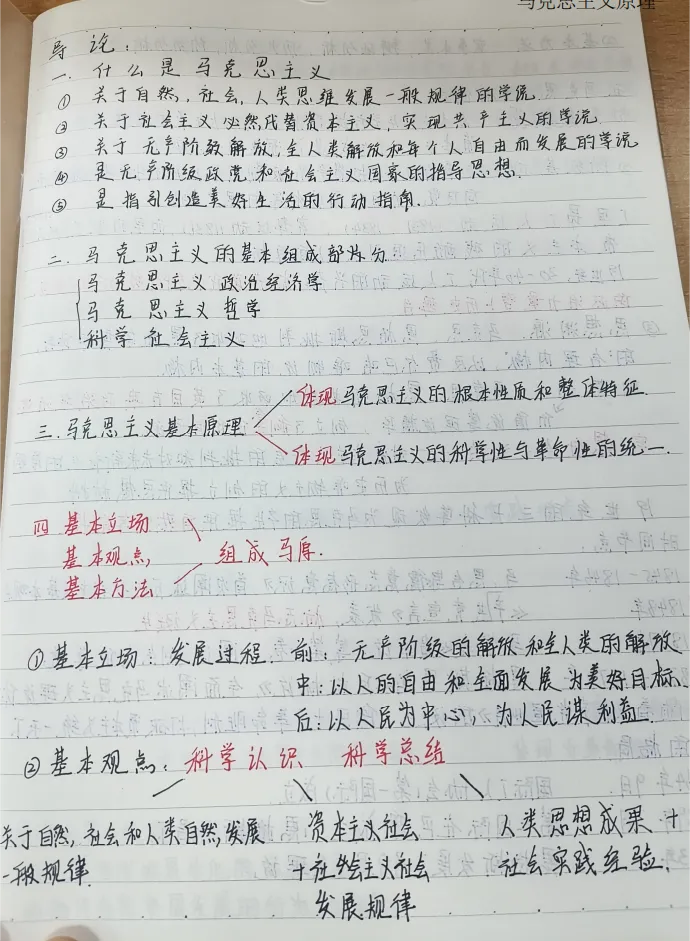 马克思主义原理
导论:
一. 什么是马克思主义
① 关于自然,社会,人类思维发展一般规律的学说
② 关于社会主义必然代替资本主义,实现共产主义的学说
③ 关于无产阶级解放,全人类解放和每个人自由而发展的学说
④ 是无产阶级政党和社会主义国家的指导思想.
⑤ 是指引创造美好生活的行动指南.
二. 马克思主义的基本组成部分
马克思主义政治经济学
马克思主义哲学
科学社会主义
体现马克思主义的根本性质和整体特征.
三.马克思主义基本原理
体现马克思主义的科学性与革命性的统一.
四 基本立场
基本观点, 组成马原.
基本方法
① 基本立场: 发展过程. 前: 无产阶级的解放和全人类的解放
中: 以人的自由和全面发展为美好目标.
后: 以人民为中心, 为人民谋利益.
② 基本观点: 科学认识 科学总结
关于自然,社会和人类自然,发展 资本主义社会 人类思想成果 +
一般规律. +社会主义社会 社会实践经验.
发展规律